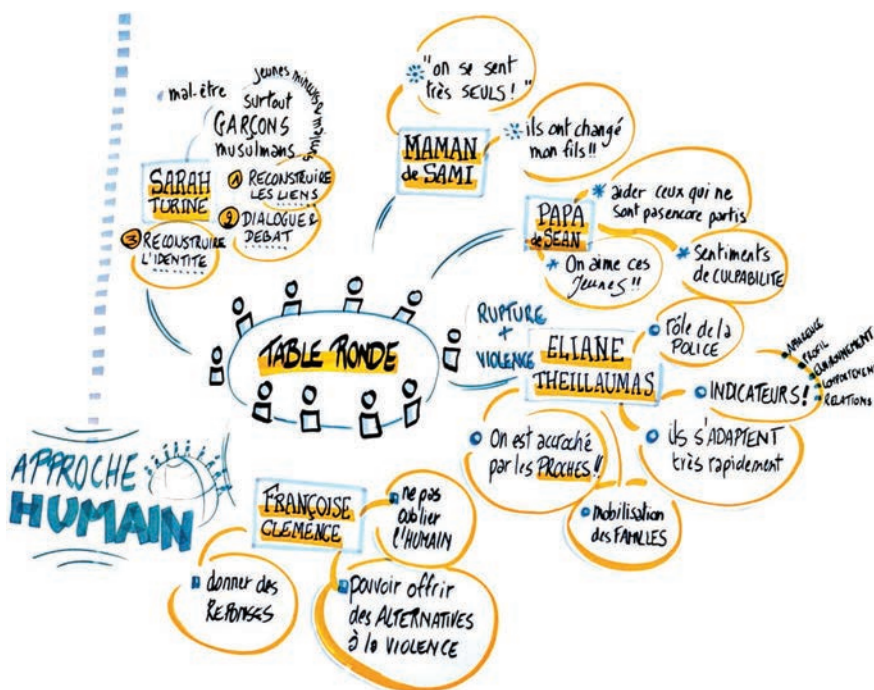 mal-être
jeunes mineurs & majeurs
surtout
GARÇONS
musulmans
SARAH
TURINE
① RECONSTRUIRE
LES LIENS
② DIALOGUE &
DEBAT
③ RECONSTRUIRE
L'IDENTITE
MAMAN
de SAMI
"on se sent
très SEULS!"
ils ont changé
mon fils!!
PAPA
de SEAN
aider ceux qui ne
sont pas encore partis
Sentiments
de CULPABILITE
On aime ces
jeunes!!
TABLE RONDE
RUPTURE
+
VIOLENCE
ELIANE
THEILLAUMAS
rôle de la
POLICE
INDICATEURS!
APPARENCE
PROFIL
ENVIRONNEMENT
COMPORTEMENT
RELATIONS
ils S'ADAPTENT
très rapidement
On est accroché
par les PROCHES!!
mobilisation
des FAMILLES
APPROCHE
HUMAIN
FRANÇOISE
CLEMENCE
ne pas
oublier
l'HUMAIN
donner des
REPONSES
pouvoir offrir
des ALTERNATIVES
à la VIOLENCE